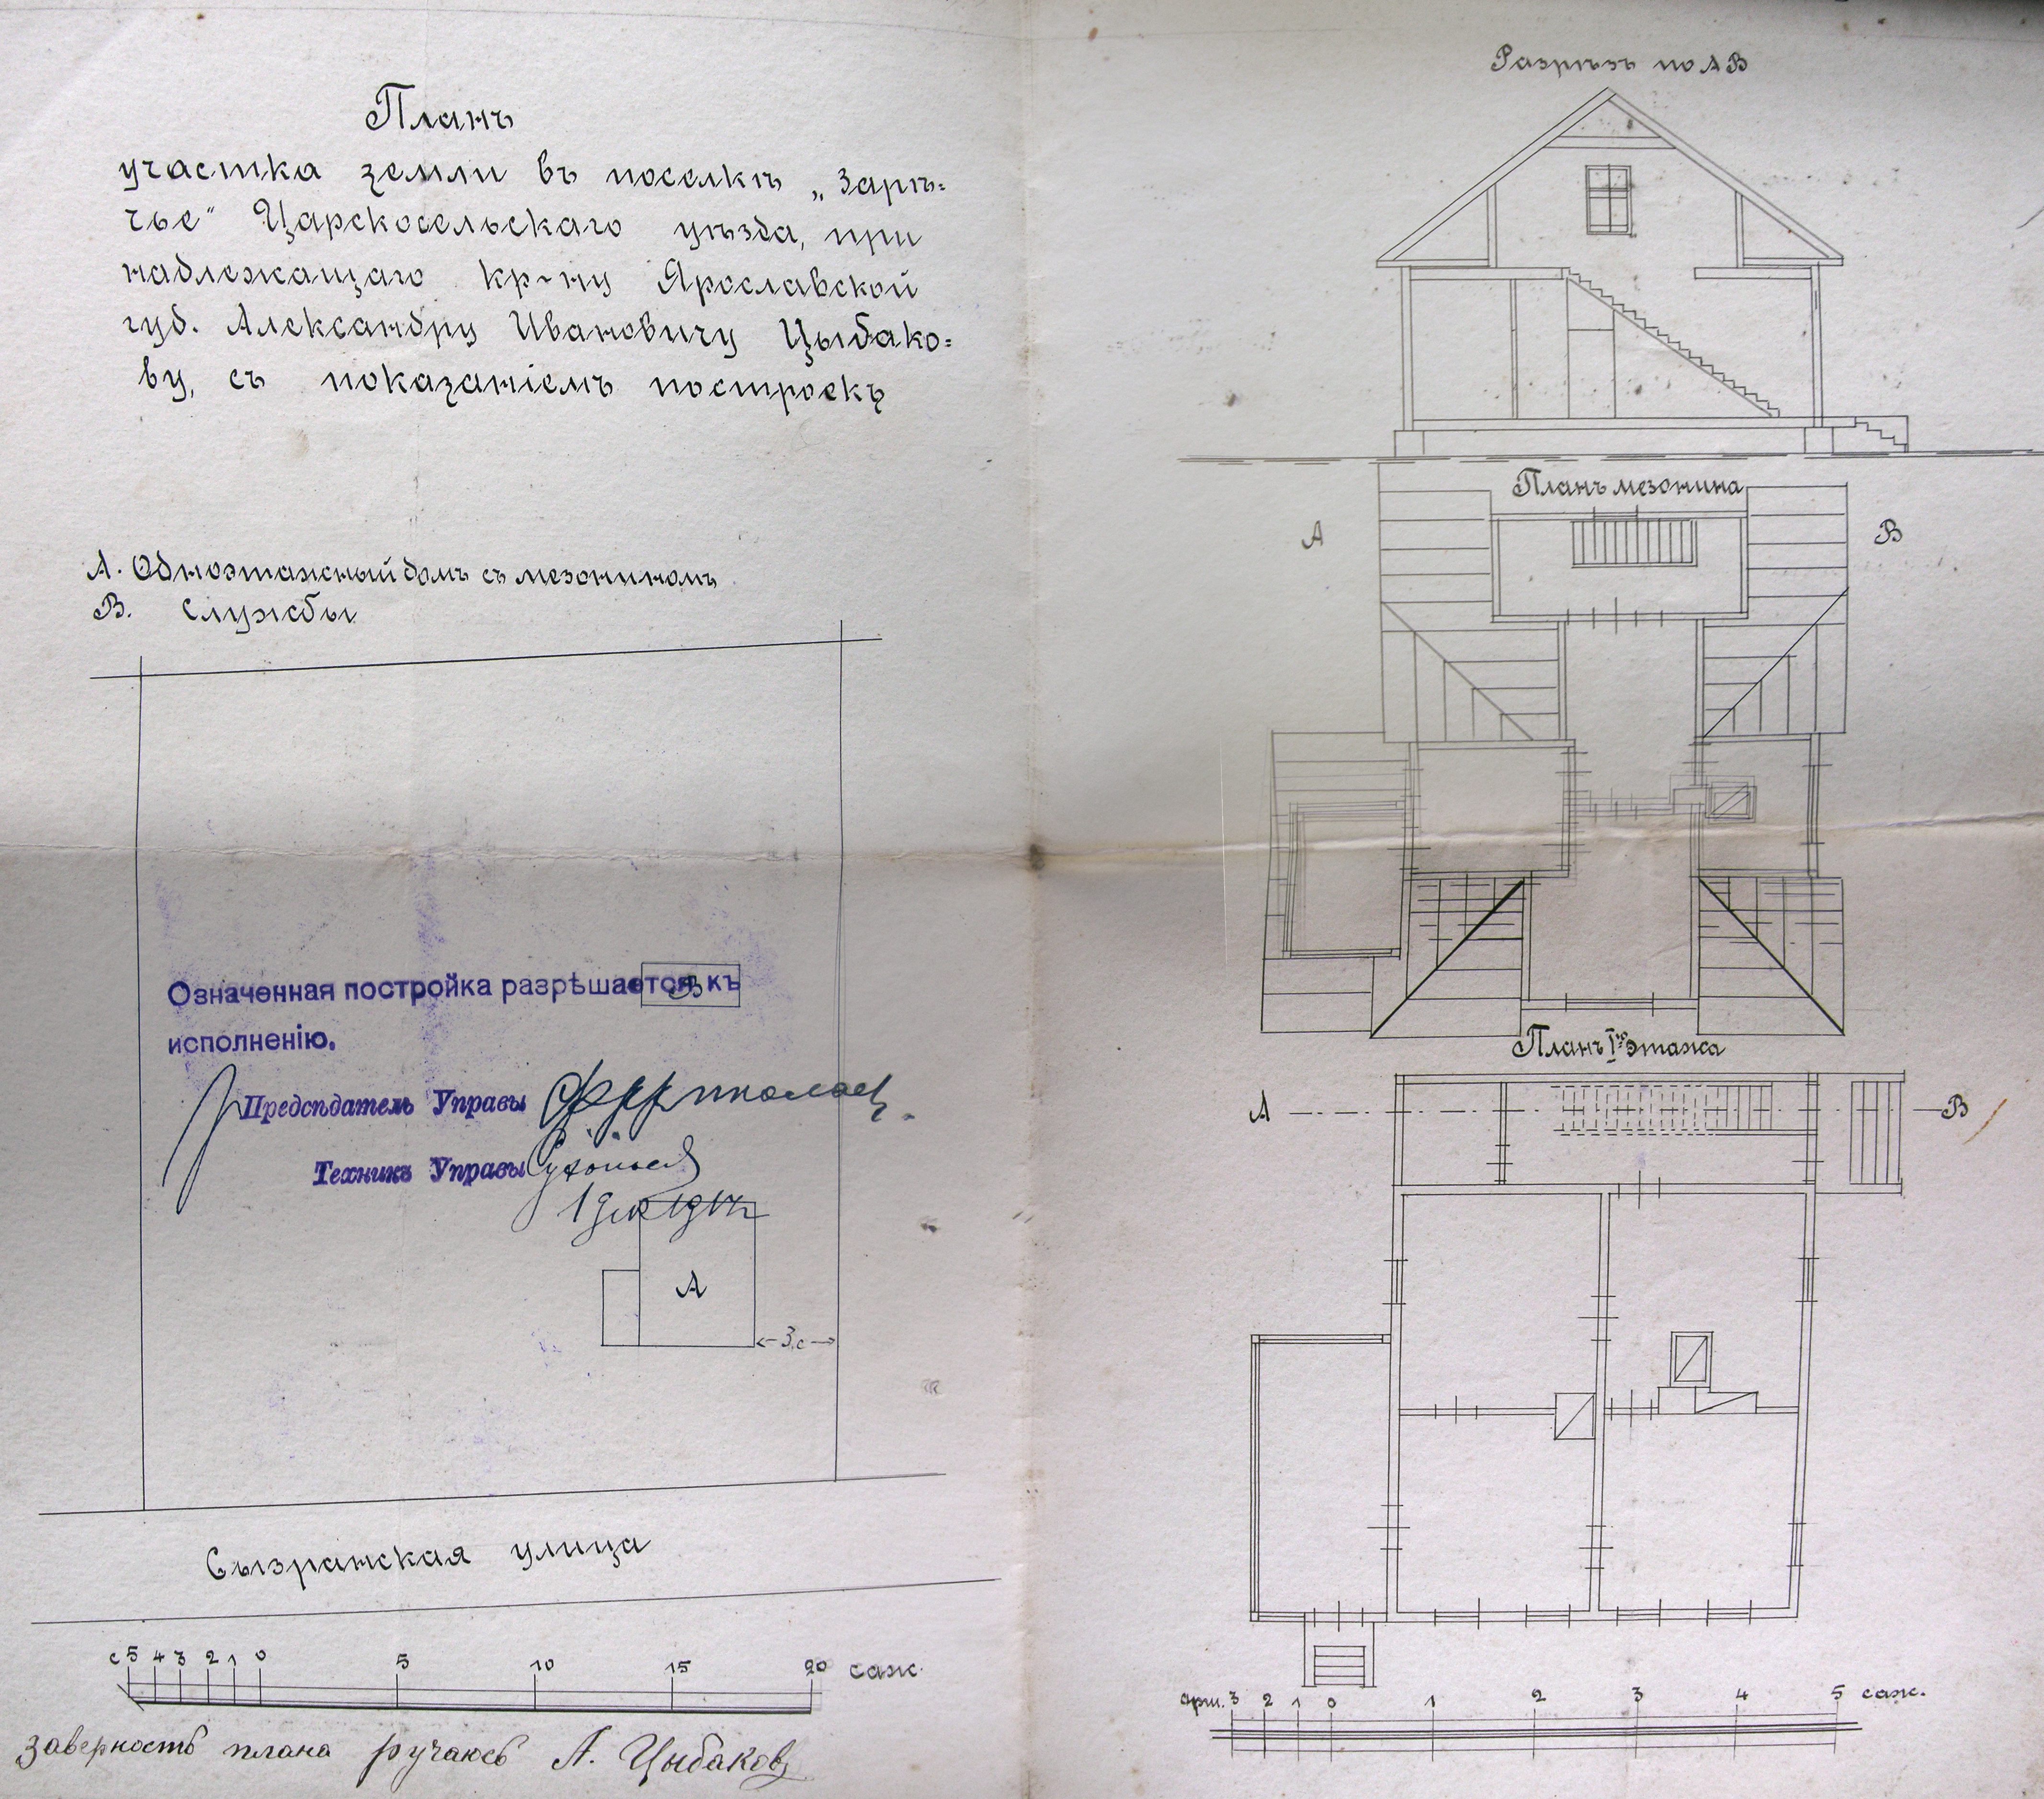 Планъ
участка земли въ поселкѣ „Зарѣ=
чье“ Царскосельскаго уѣзда, при
надлежащаго кр-ну Ярославской
губ. Александру Ивановичу Цыбако=
ву, съ показаніемъ построекъ
А. Одноэтажный домъ съ мезониномъ
В. Службы
В
Означенная постройка разрѣшается къ
исполненію.
Предсѣдатель Управы
Техникъ Управы
А
3 с
Сызранская улица
с 5 4 3 2 1 0 5 10 15 20 саж.
За верность плана ручаюсь А. Цыбаковъ
Разрѣзъ по АВ
Планъ мезонина
А В
Планъ Iго этажа
А В
арш. 3 2 1 0 1 2 3 4 5 саж.